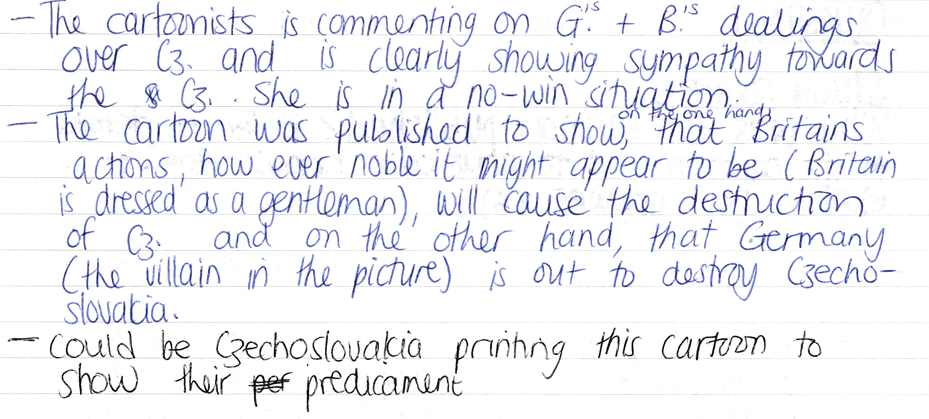 – The cartoonists is commenting on G.'s + B.'s dealings
over Cz. and is clearly showing sympathy towards
the Cz. . She is in a no-win situation.
– The cartoon was published to show, on the one hand, that Britains
actions, how ever noble it might appear to be (Britain
is dressed as a gentleman), will cause the destruction
of Cz. and on the other hand, that Germany
(the villain in the picture) is out to destroy Czecho-
slovakia.
– Could be Czechoslovakia printing this cartoon to
show their per predicament